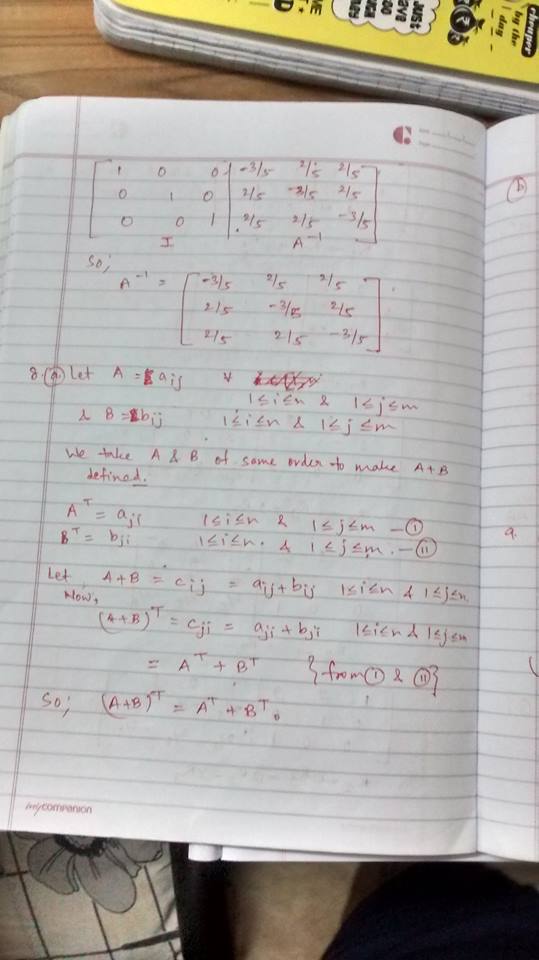 JUST
GO
cheaper
by the
day
1 0 0 | -3/5 2/5 2/5
0 1 0 | 2/5 -3/5 2/5
0 0 1 | 2/5 2/5 -3/5
I A⁻¹
So;
A⁻¹ = [ -3/5 2/5 2/5
2/5 -3/5 2/5
2/5 2/5 -3/5 ]
8. (a) Let A = aij ∀
1≤i≤n & 1≤j≤m
& B = bij 1≤i≤n & 1≤j≤m
We take A & B of same order to make A+B
defined.
Aᵀ = aji 1≤i≤n & 1≤j≤m – (I)
Bᵀ = bji 1≤i≤n & 1≤j≤m – (II)
Let, A+B = cij = aij + bij 1≤i≤n & 1≤j≤m
Now,
(A+B)ᵀ = cji = aji + bji 1≤i≤n & 1≤j≤m
= Aᵀ + Bᵀ {from (I) & (II)}
So; (A+B)ᵀ = Aᵀ + Bᵀ.
mycompanion
b
a.